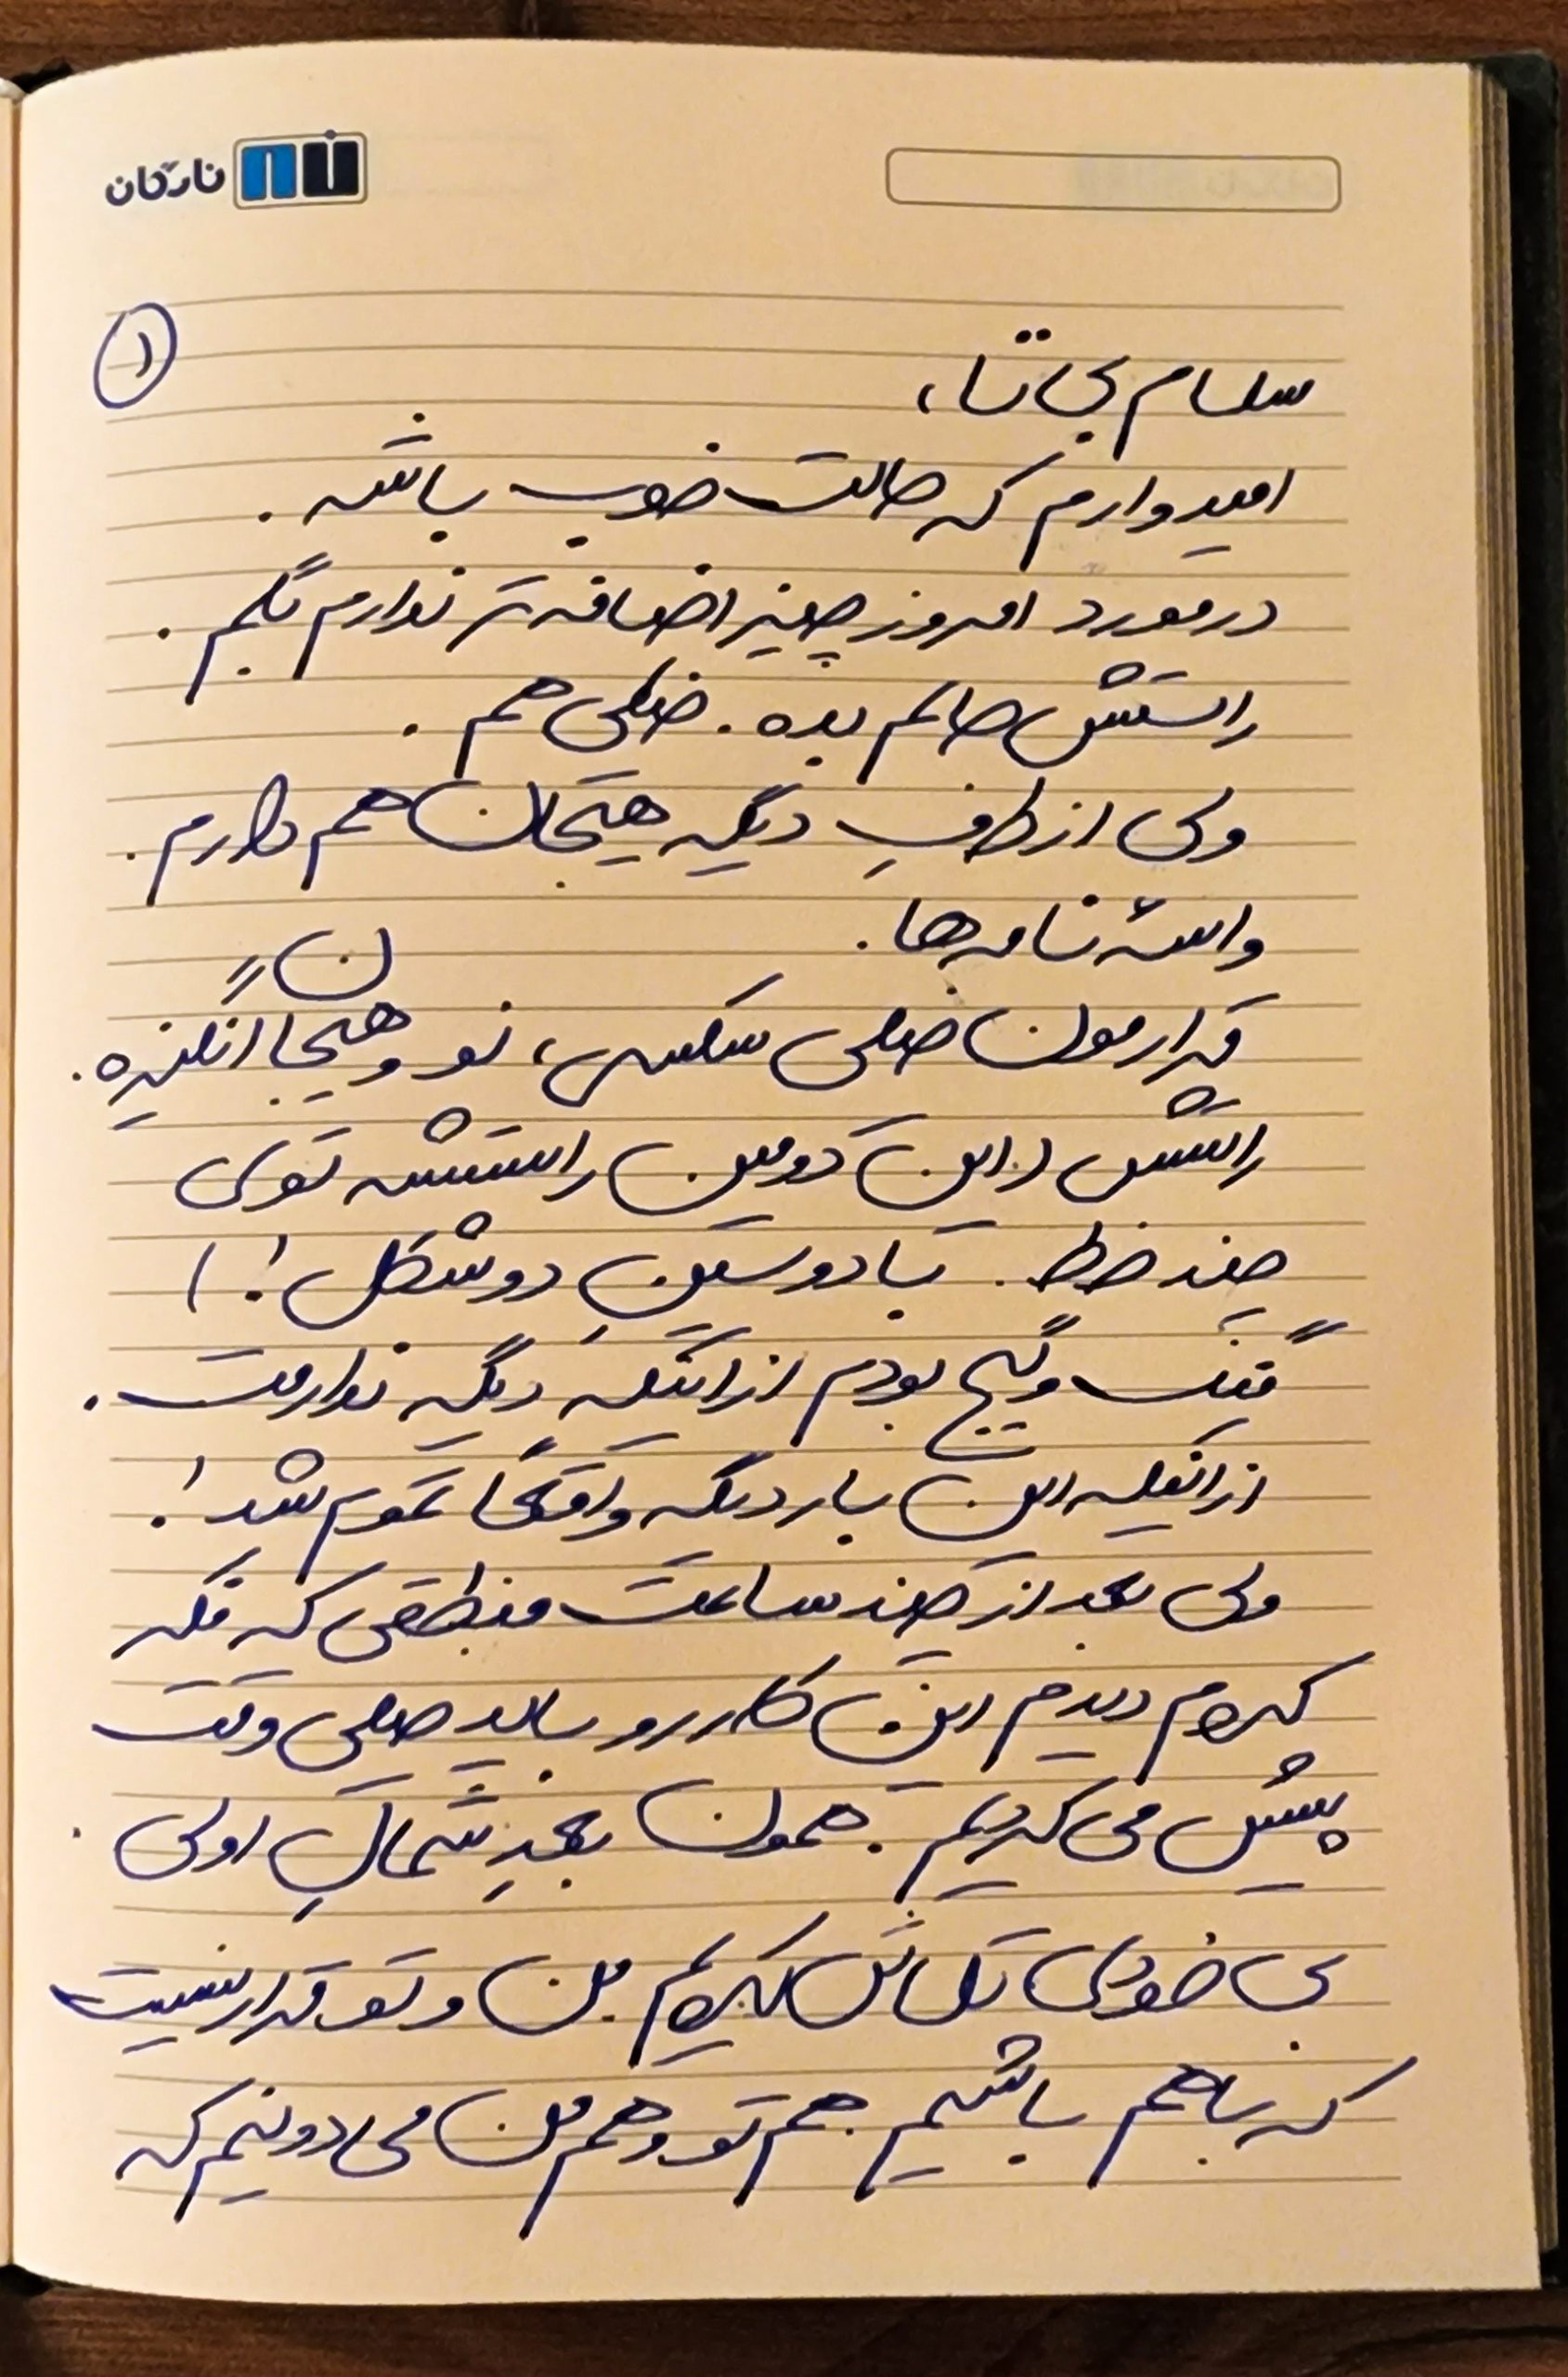 نارکان
۱
سلام بجاتا،
امیدوارم که حالت خوب باشه.
درمورد امروز چیز اضافه‌تر ندارم بگم.
راستش حالم بده. خیلی هم.
ولی از طرفِ دیگه هیجان هم دارم.
واسه نامه‌ها.
قرارمون خیلی سکسی، نو و هیجان انگیزه.
راستش (این دومین راستشه توی
چند خط. با دو سین دو شکل!)
گنگ و گیج بودم از اینکه دیگه ندارمت.
از اینکه این بار دیگه واقعاً تموم شد!
ولی بعد از چند ساعت منطقی که فکر
کردم دیدم این کار رو باید خیلی وقت
پیش می‌کردیم. همون بعدِ شمالِ اولی.
بی‌خودی تلاش کردیم. من و تو قرار نیست
که باهم باشیم. هم تو و هم من می‌دونیم که